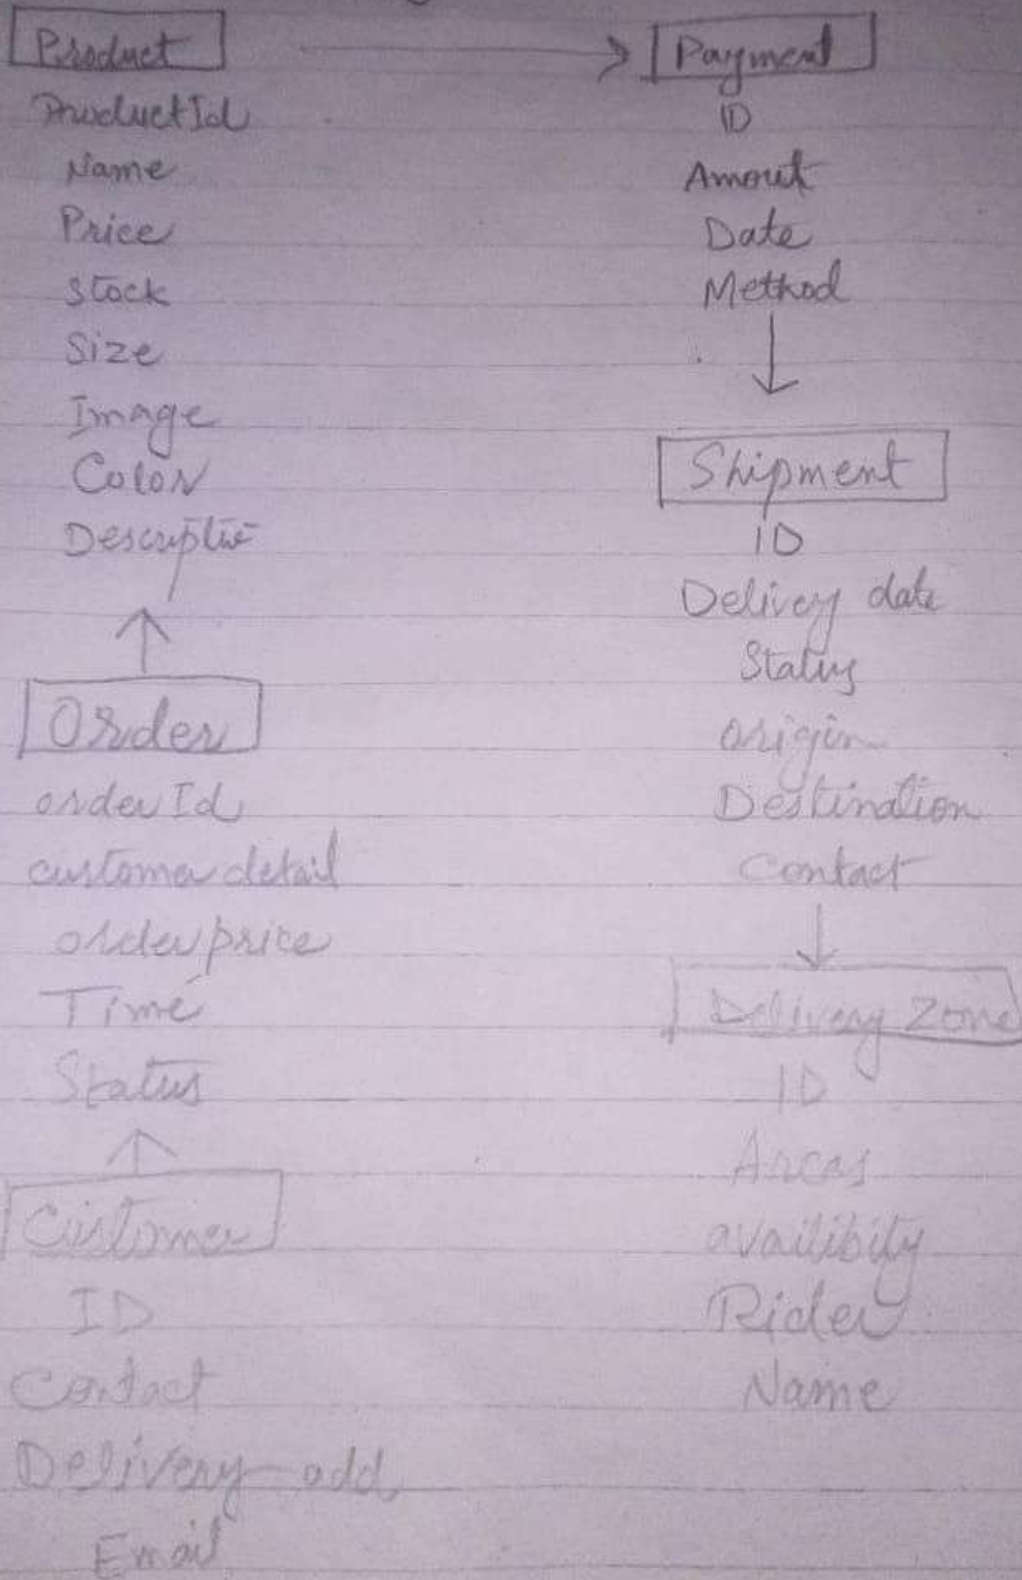 Product
ProductId
Name
Price
Stock
Size
Image
Color
Order
orderId
customer detail
order price
Time
Status
Customer
ID
Contact
Delivery add
Email
Payment
ID
Amout
Date
Method
Shipment
ID
Delivery date
Status
origin
Destination
Contact
Delivery Zone
ID
Areas
availibity
Rider
Name